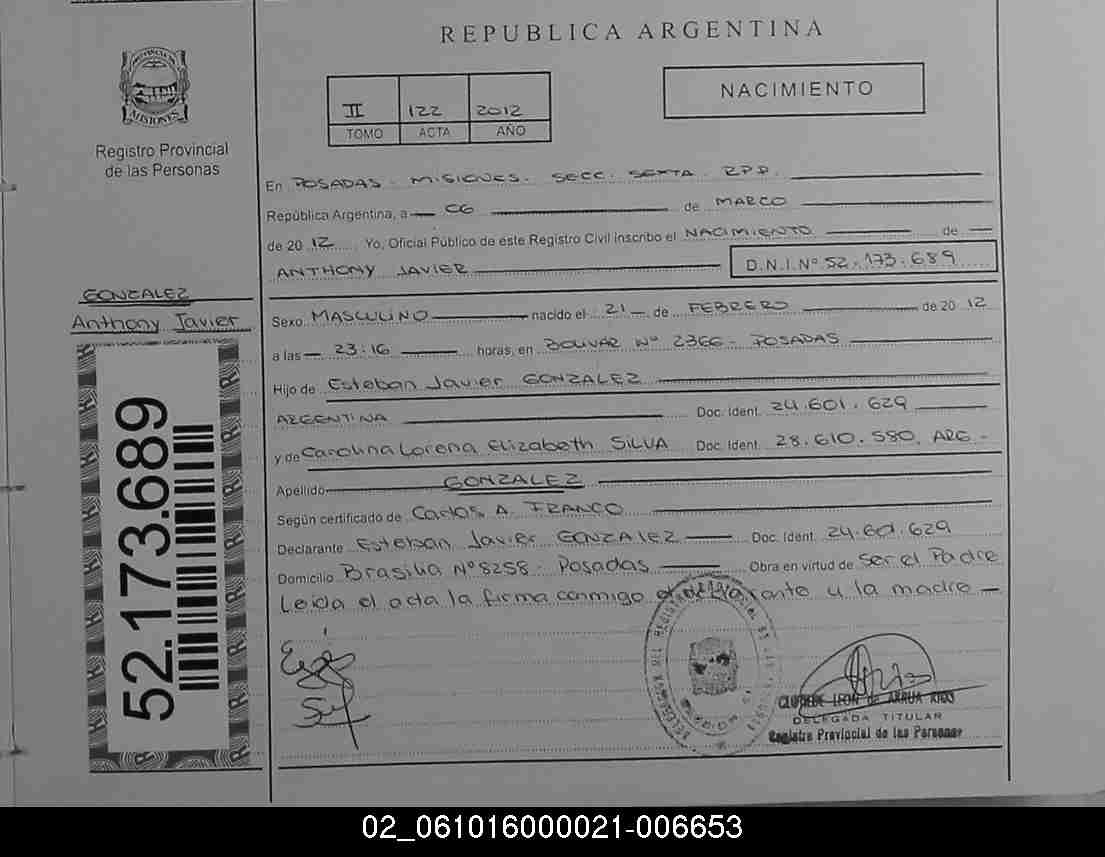 REPUBLICA ARGENTINA
PROVINCIA
MISIONES
Registro Provincial
de las Personas
II 122 2012
TOMO ACTA AÑO
NACIMIENTO
En POSADAS - MISIONES. SECC. SEXTA. R.P.P.
República Argentina, a 06 de MARCO
de 2012 Yo, Oficial Público de este Registro Civil inscribo el NACIMIENTO de
ANTHONY JAVIER D.N.I.Nº 52.173.689
GONZALEZ
Anthony Javier
Sexo MASCULINO nacido el 21 de FEBRERO de 2012
a las 23:16 horas, en BOLIVAR Nº 2366 - POSADAS
Hijo de Esteban Javier GONZALEZ
ARGENTINA Doc. Ident. 24.601.629
y de Carolina Lorena Elizabeth SILVA Doc. Ident. 28.610.580. ARG -
Apellido GONZALEZ
Según certificado de Carlos A. FRANCO
Declarante Esteban Javier GONZALEZ Doc. Ident. 24.601.629
Domicilio Brasilia Nº 8258 - Posadas Obra en virtud de ser el Padre
Leida el acta la firma conmigo el declarante y la madre -
52.173.689
CLOTILDE LEON de ARRUA RIOS
DELEGADA TITULAR
Registro Provincial de las Personas
02_061016000021-006653